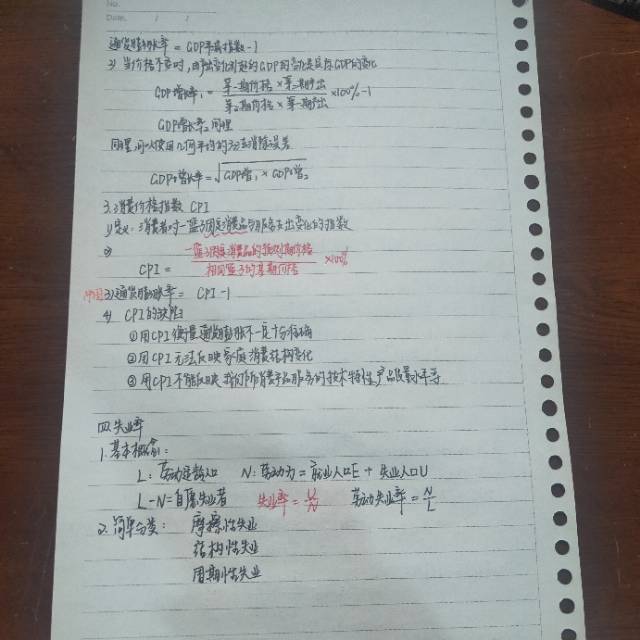 No.
Date. / /
通货膨胀率 = GDP平减指数 - 1
3) 当价格不变时,由产出变化引起的GDP的变化是实际GDP的变化
GDP增长率₁ = 第一期价格 × 第二期产出 / 第一期价格 × 第一期产出 × 100% - 1
GDP增长率₂ 同理
同理,可以使用几何平均的方法消除误差
GDP增长率 = √GDP增₁ × GDP增₂
3. 消费价格指数 CPI
1) 定义: 消费者对一篮子固定消费品与服务支出变化的指数
2)
CPI = 一篮子固定消费品的按现期价格 / 相同篮子的基期价格 × 100%
中国 3) 通货膨胀率 = CPI - 1
4) CPI的缺陷:
① 用CPI衡量通货膨胀不一定十分精确
② 用CPI无法反映家庭消费结构变化
③ 用CPI不能反映我们所消费产品服务的技术特性,产品质量的
四. 失业率
1. 基本概念:
L: 劳动年龄人口 N: 劳动力 = 就业人口E + 失业人口U
L-N = 自愿失业者 失业率 = U/N 劳动失业率 = N/L
2. 简单分类: 摩擦性失业
结构性失业
周期性失业